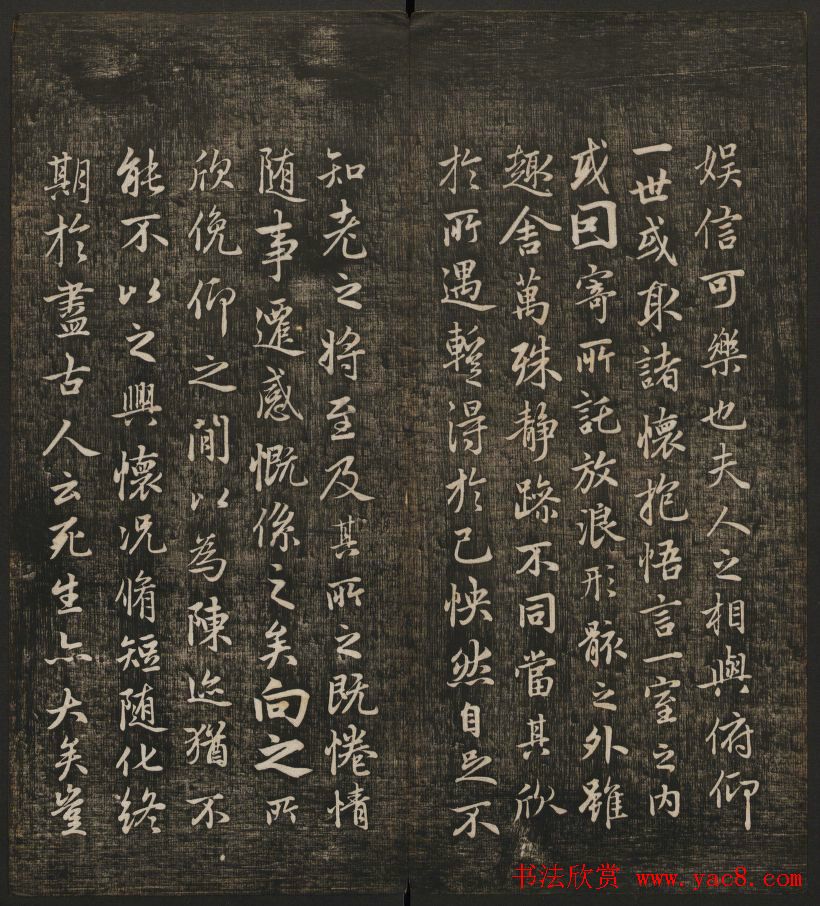 娛信可樂也夫人之相與俯仰
一世或取諸懷抱悟言一室之內
或因寄所託放浪形骸之外雖
趣舍萬殊靜躁不同當其欣
於所遇暫得於己怏然自足不
知老之將至及其所之既惓情
隨事遷感慨係之矣向之所
欣俛仰之閒以為陳迹猶不
能不以之興懷況脩短隨化終
期於盡古人云死生亦大矣豈
书法欣赏 www.yac8.com